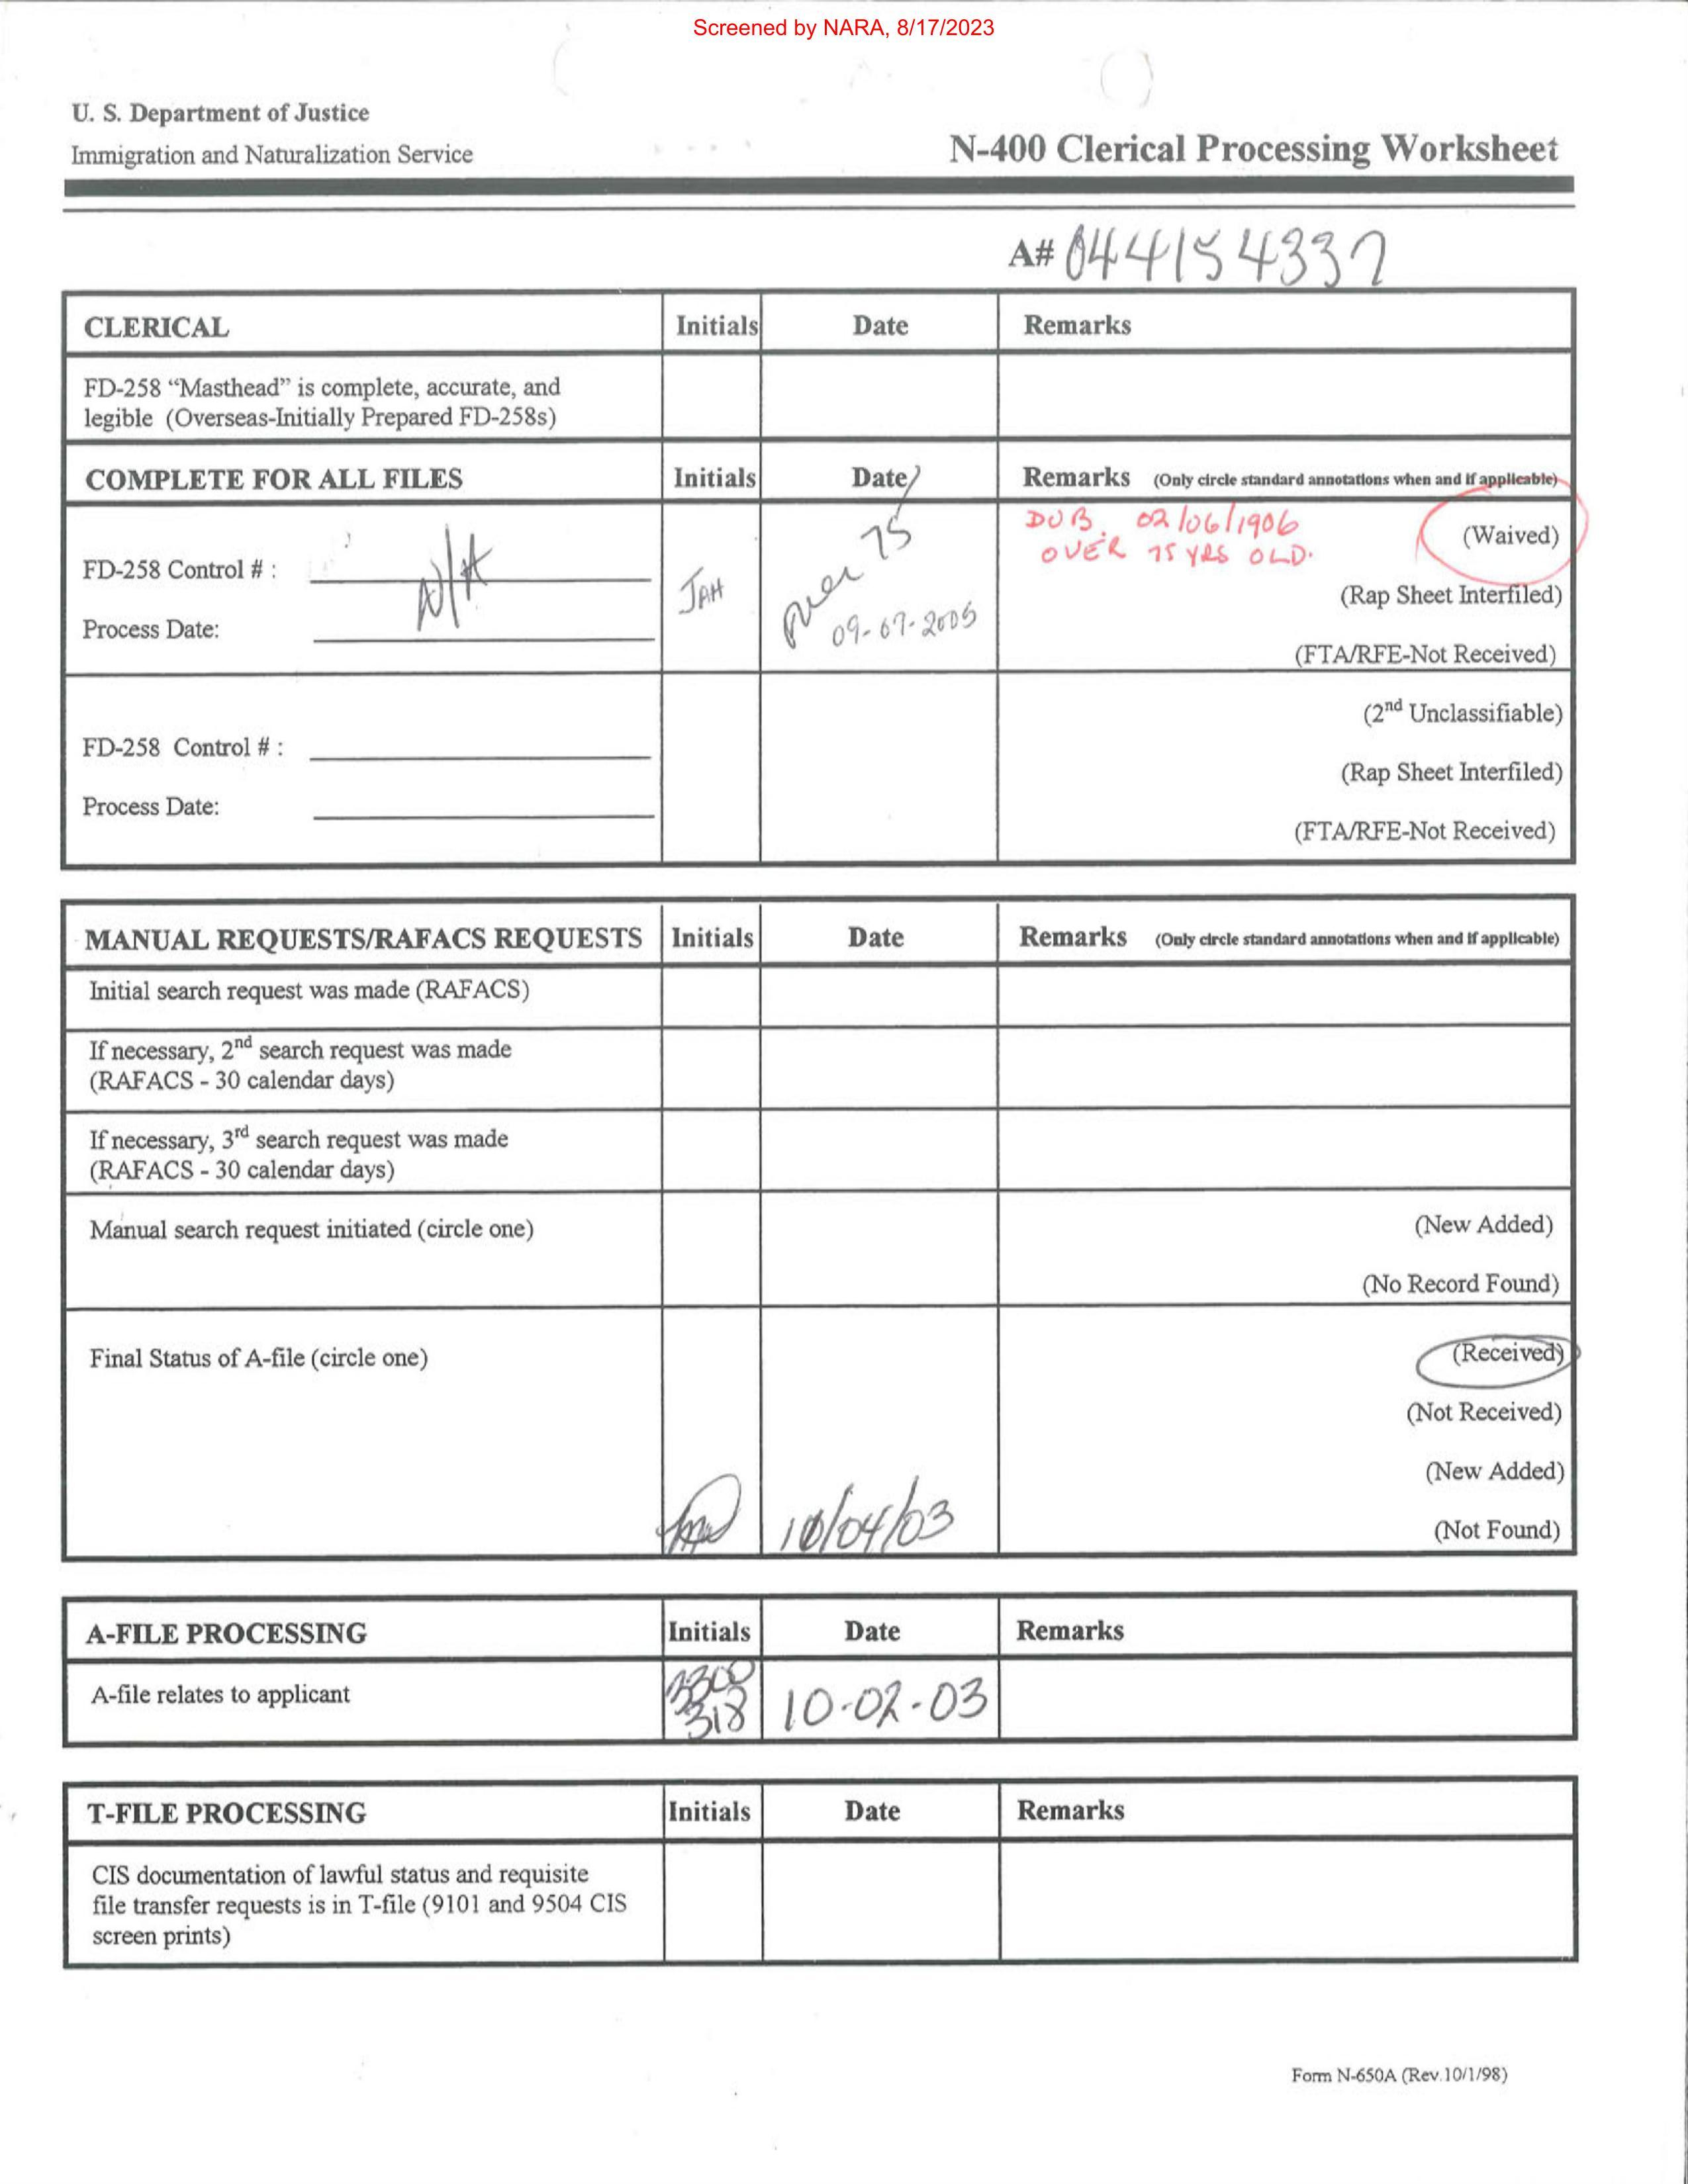 Screened by NARA, 8/17/2023
U. S. Department of Justice
Immigration and Naturalization Service
N-400 Clerical Processing Worksheet
A# 044154337
CLERICAL Initials Date Remarks
FD-258 “Masthead” is complete, accurate, and
legible (Overseas-Initially Prepared FD-258s)
COMPLETE FOR ALL FILES Initials Date Remarks (Only circle standard annotations when and if applicable)
DOB. 02/06/1906 (Waived)
OVER 75 YRS OLD.
FD-258 Control # : N/A JAH over 75
(Rap Sheet Interfiled)
Process Date: 09-07-2005
(FTA/RFE-Not Received)
(2nd Unclassifiable)
FD-258 Control # :
(Rap Sheet Interfiled)
Process Date:
(FTA/RFE-Not Received)
MANUAL REQUESTS/RAFACS REQUESTS Initials Date Remarks (Only circle standard annotations when and if applicable)
Initial search request was made (RAFACS)
If necessary, 2nd search request was made
(RAFACS - 30 calendar days)
If necessary, 3rd search request was made
(RAFACS - 30 calendar days)
Manual search request initiated (circle one) (New Added)
(No Record Found)
Final Status of A-file (circle one) (Received)
(Not Received)
(New Added)
10/04/03 (Not Found)
A-FILE PROCESSING Initials Date Remarks
A-file relates to applicant 318 10-02-03
T-FILE PROCESSING Initials Date Remarks
CIS documentation of lawful status and requisite
file transfer requests is in T-file (9101 and 9504 CIS
screen prints)
Form N-650A (Rev.10/1/98)